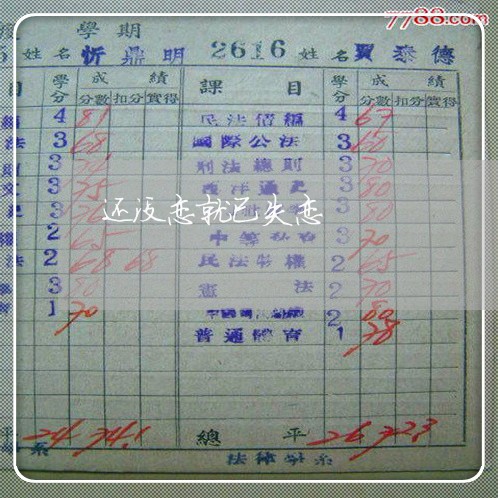 7788.com
學期
姓名 忻鼎明 2616 姓名 賈泰德
目 學分 成績 課目 學分 成績
分數 扣分 實得 分數 扣分 實得
4 81 民法債編 4 67
法 3 68 國際公法 3 60
3 刑法總則 3 70
3 75 西洋通史 3 80
3 3 80
还没恋就已失恋
2 65 3 70
法 2 68 68 民法物權 2 65
3 80 憲法 2 70
1 70 2 80
普通體育 1 78
平 24 74.1 總平 26 72.3
系 法律學系